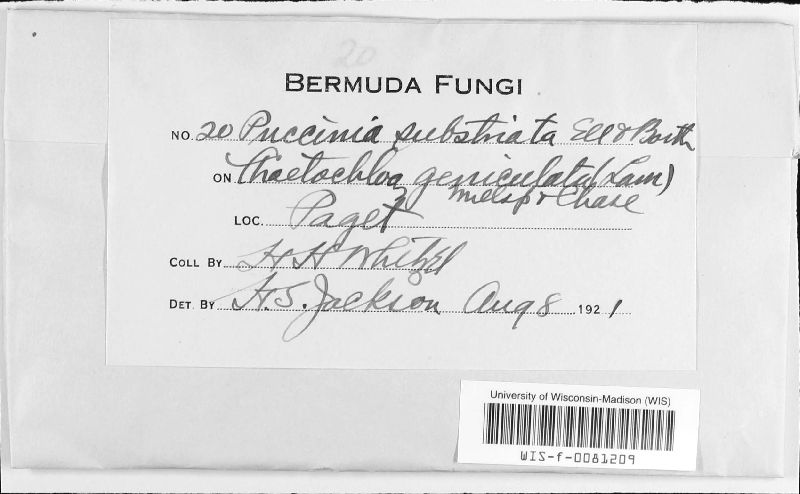 20
BERMUDA FUNGI
NO. 20 Puccinia substriata Ell & Barth
ON Chaetochloa geniculata (Lam)
Millsp & Chase
LOC. Paget
COLL BY H H Whetzel
DET. BY H. S. Jackson Aug 8 1921
University of Wisconsin-Madison (WIS)
WIS-f-0081209